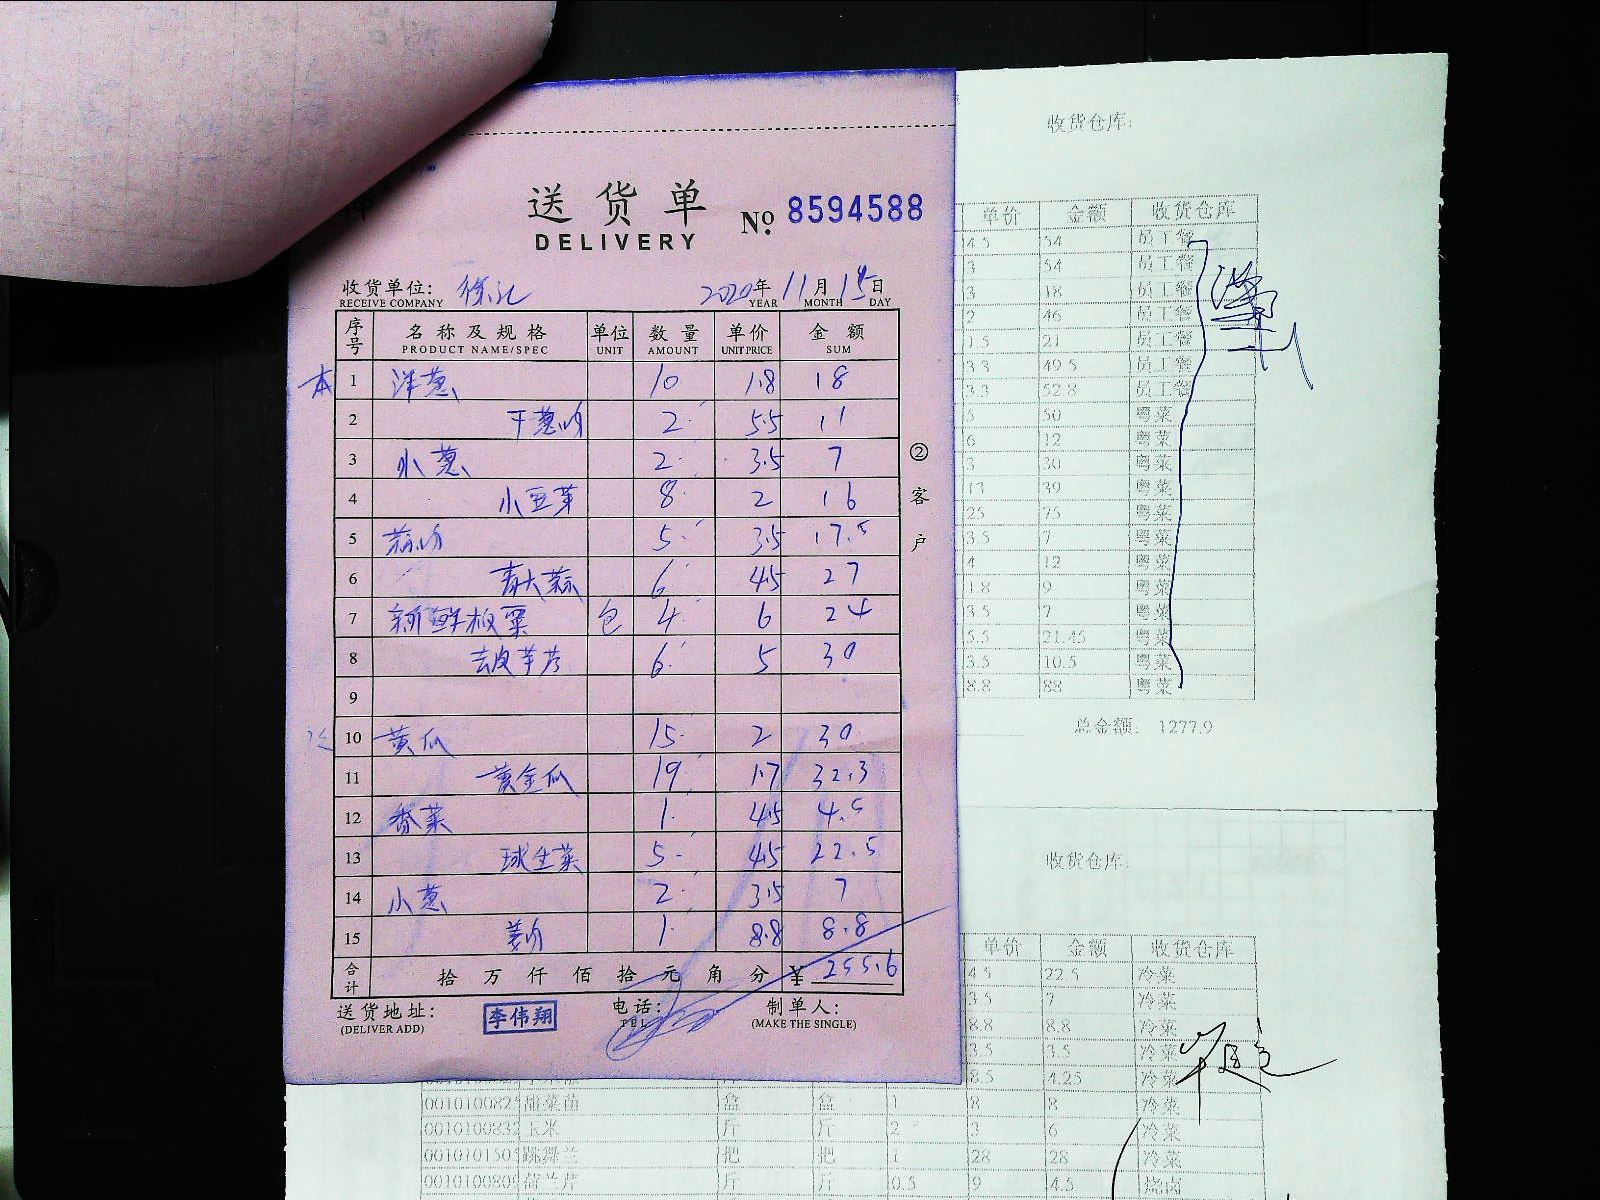 送货单
DELIVERY
№ 8594588
收货单位: 徐汇 2020年 11月 15日
RECEIVE COMPANY YEAR MONTH DAY
序号 名称及规格 单位 数量 单价 金额
PRODUCT NAME/SPEC UNIT AMOUNT UNIT PRICE SUM
本 1 洋葱 10 1.8 18
2 干葱肉 2 5.5 11
3 小葱 2 3.5 7
4 小豆芽 8 2 16
5 蒜肉 5 3.5 17.5
6 青大蒜 6 4.5 27
7 新鲜板栗 包 4 6 24
8 去皮芋艿 6 5 30
9
10 黄瓜 15 2 30
11 黄金瓜 19 1.7 32.3
12 香菜 1 4.5 4.5
13 球生菜 5 4.5 22.5
14 小葱 2 3.5 7
15 8.8 8.8
合计 拾万仟佰拾元角分 ¥ 255.6
送货地址: 李伟翔 电话: 制单人:
(DELIVER ADD) TEL (MAKE THE SINGLE)
②客户
收货仓库:
单价 金额 收货仓库
4.5 54 员工餐
3 54 员工餐
3 18 员工餐
2 46 员工餐
1.5 21 员工餐
3.3 49.5 员工餐
3.3 52.8 员工餐
5 50 粤菜
6 12 粤菜
3 30 粤菜
13 39 粤菜
25 75 粤菜
3.5 7 粤菜
4 12 粤菜
1.8 9 粤菜
3.5 7 粤菜
5.5 21.45 粤菜
3.5 10.5 粤菜
8.8 88 粤菜
总金额: 1277.9
收货仓库:
单价 金额 收货仓库
4.5 22.5 冷菜
3.5 7 冷菜
8.8 8.8 冷菜
3.5 3.5 冷菜
8.5 4.25 冷菜
001010082 甜菜苗 盒 盒 1 8 8 冷菜
001010083 玉米 斤 斤 2 3 6 冷菜
001010150 跳舞兰 把 把 1 28 28 冷菜
001010080 荷兰芹 斤 斤 0.5 9 4.5 烧卤